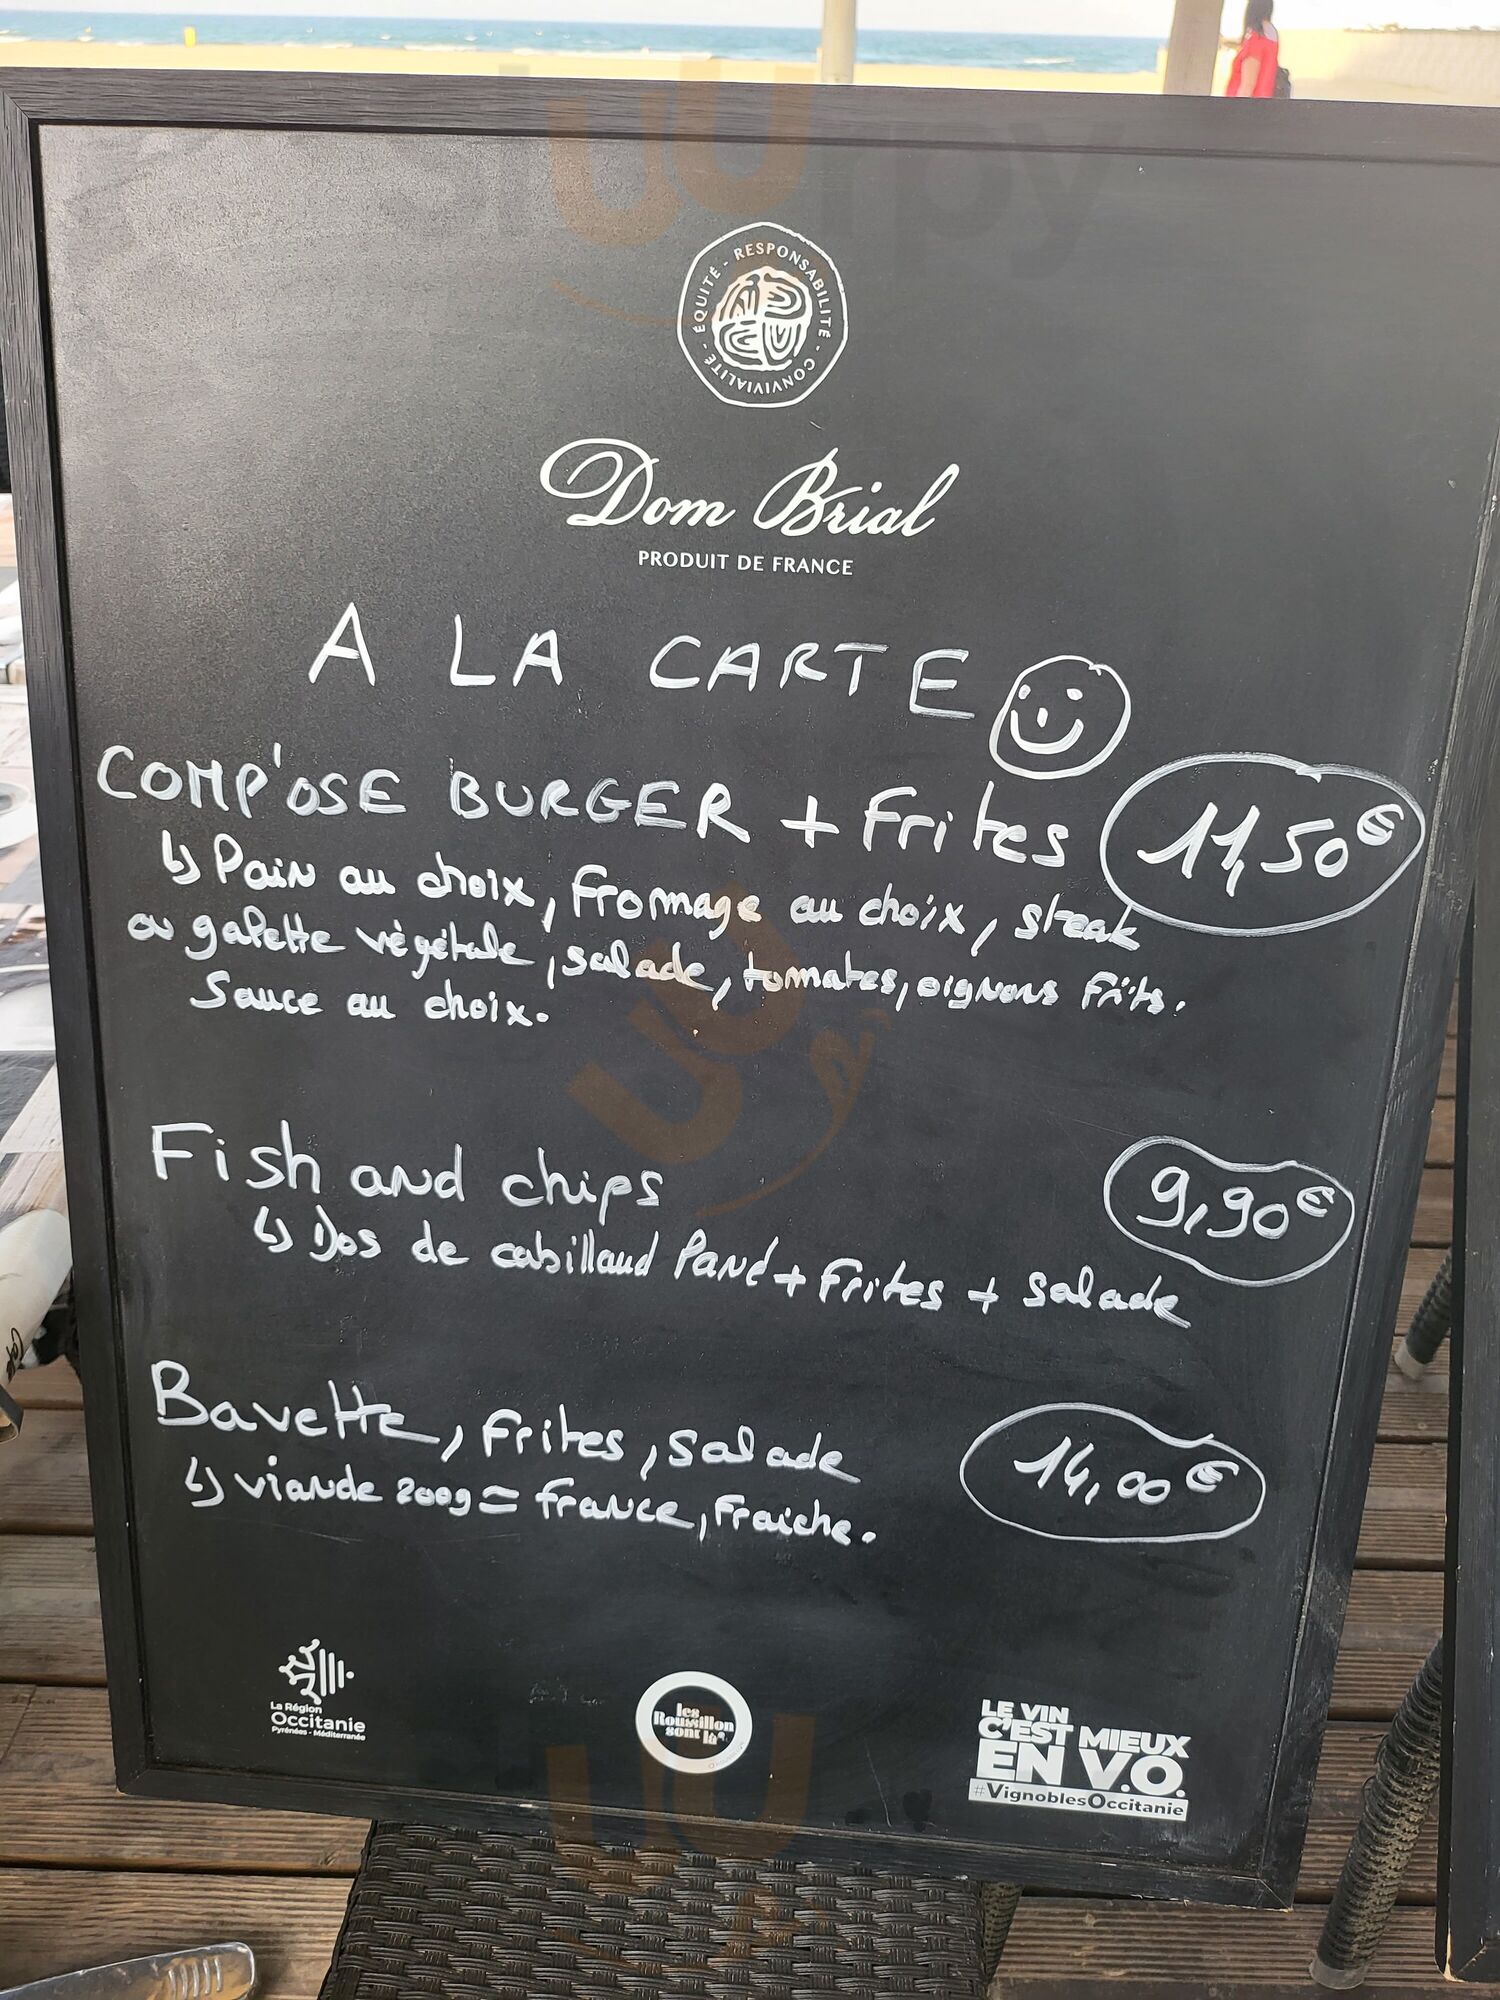 ÉQUITÉ - RESPONSABILITÉ - CONVIVIALITÉ -
Dom Brial
PRODUIT DE FRANCE
A LA CARTE
COMP'OSE BURGER + Frites 11,50€
↳ Pain au choix, Fromage au choix, steak
ou galette végétale, salade, tomates, oignons frits.
Sauce au choix.
Fish and chips 9,90€
↳ Dos de cabillaud Pané + Frites + salade
Bavette, Frites, salade 14,00€
↳ viande 200g = france, Fraiche.
La Région
Occitanie
Pyrénées - Méditerranée
les
Roussillon
sont là
LE VIN
C'EST MIEUX
EN V.O.
#VignoblesOccitanie
slurpy